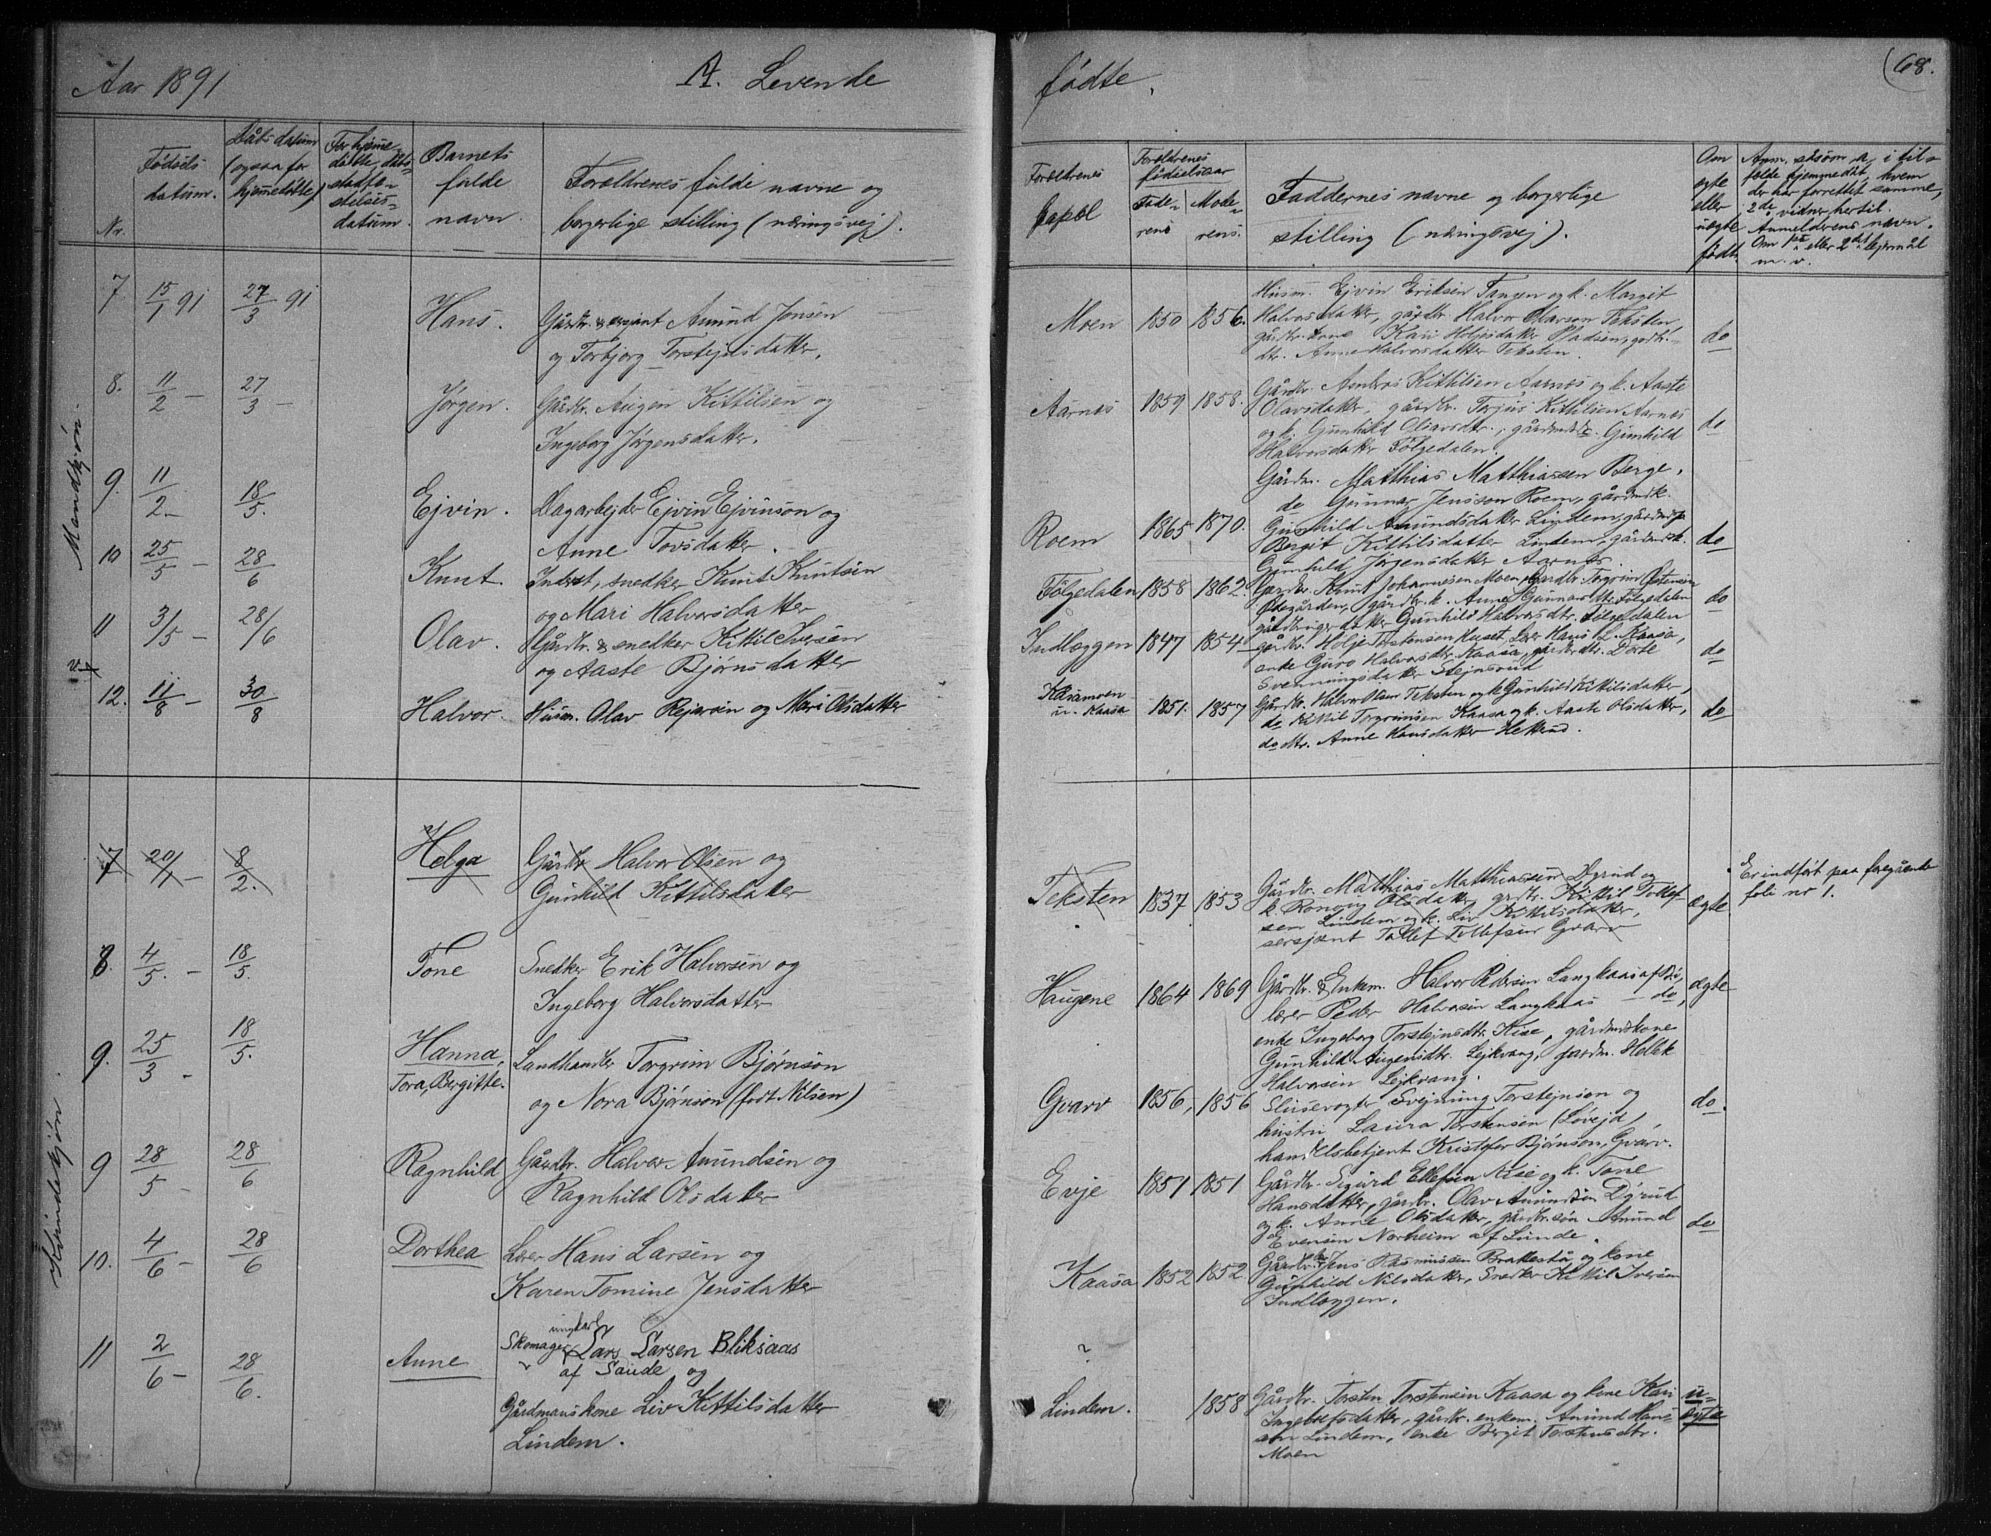 Aar 1891
A. Levende
fødte.
(68.
Nr.
Fødsels
datum.
Dåbsdatum
(ogsaa for
hjemmedøbte)
For hjemme-
døbte, dåbs
stadfæ-
stelses-
datum.
Barnets
fulde
navn.
Forældrenes fulde navne og
borgerlige stilling (næringsvej).
Forældrenes
bopæl
Forældrenes
fødselsaar
Fade-
rens
Mode-
rens.
Faddernes navne og borgerlige
stilling (næringsvej).
Om
ægte
eller
uægte
født.
Anm. såsom a, i til-
fælde hjemmedåb, hvem
der har forrettet samme,
2de vidner hertil.
Anmelderens navn.
Om 1ste eller 2det lejermål
m. v.
Mandkjøn.
7 15/1 91 27/3 91 Hans. Gårdbr. & sersjant Amund Jonsen
og Torbjorg Torstejnsdatter.
Moen 1850 1856.
Husm. Ejvin Eriksen Tangen og k. Margit
Halvorsdatter, gårdbr. Halvor Olarson Teksten,
gårdbr. kone Kari Holjesdatter Pladsen, gårdbr.
dtr. Anne Halvorsdatter Teksten.
do
8. 11/2 – 27/3 – Jørgen. Gårdbr. Augen Kittilsen og
Ingeborg Jørgensdatter.
Aarnes 1859 1858.
Gårdbr. Anders Kittilsen Aarnes og k. Aaste
Olavsdatter, gårdbr. Torjus Kittilsen Aarnes
og k. Gunhild Olavsdtr., gårdmdtr. Gunhild
Halvorsdatter Følgedalen.
do
9. 11/2 – 18/5. Ejvin. Dagarbejder Ejvin Ejvinson og
Anne Tovsdatter.
Roem 1865 1870.
Gårdm. Matthias Matthiassen Berge,
do Gunnar Jensson Roem, gårdmdk.
Gunhild Amundsdatter Lindem, gårdmdp
Bergit Kittilsdatter Lindem, gårdmdk.
Gunhild Jørgensdatter Aarnes.
do
10 25/5 – 28/6 Knut. Inderst, snedker Knut Knutsen
og Mari Halvorsdatter
Følgedalen 1858 1862.
Gårdbr. Knut Johannesen Moen, Gårdbr. Torgrim Østensen
Ødegården, gårdbr. k. Anne Gunnarsdtr. Følgedalen
gårdbrugerdatter Gunhild Halvorsdtr. Følgedalen
do
11 3/5 – 28/6 Olav. Gårdbr. & snedker Kittil Iversen
og Aaste Bjørnsdatter
Indlæggen 1847 1854
gårdbr. Holje Torstensen Huset, Lærer Hans L. Kaasa,
enke Guro Halvorsdtr. Kaasa, gårdbrdtr. Dorte
Svenningsdatter Stejnsrud
do
12. 11/8 – 30/8 Halvor. Husm. Olav Rejersen og Mari Olsdatter
Kaasamoen
u. Kaasa 1851. 1857
Gårdbr. Halvor Olsen Teksten og k. Gunhild Kittilsdatter,
do Kittil Torgrimsen Kaasa og k. Aaste Olsdatter,
do dtr. Anne Hansdatter Hekrud.
do
Kvindekjøn.
7 20/1 – 8/2. Helga Gårdbr. Halvor Olsen og
Gunhild Kittilsdatter
Teksten 1837 1853
Gårdbr. Matthias Matthiassen Dyrud og
k. Ronoug Olsdatter, gårdbr. Kittil Tollef-
sen Lindem og k. Liv Kittilsdatter,
sersjant Tollef Tollefsen Gvarv
ægte
Er indført paa foregående
folio nr 1.
8. 4/5. – 18/5. Tone Snedker Erik Halvorsen og
Ingeborg Halvorsdatter
Haugene 1864 1869
Gårdbr. & Enkem. Halvor Pedersen Langkaas af Bø,
lærer Peder Halvorsen Langkaas – do,
enke Ingeborg Torstejnsdtr. Kise, gårdmdskone
Gunhild Augensdtr. Lejkvang, gårdm. Hollek
Halvorsen Lejkvang.
ægte
9. 25/3 – 18/5. Hanna,
Tora, Bergitte. Landhandler Torgrim Bjørnson
og Nora Bjørnson (født Nilsen)
Gvarv 1856, 1856
Slusevogter Svejnung Torstejnson og
hustru Laura Torstensen (Løvejd,
handelsbetjent Kristofer Bjørnson, Gvarv.
do.
9 28/5 – 28/6 Ragnhild Gårdbr. Halvor Amundsen og
Ragnhild Olsdatter
Evje 1851 1851
Gårdbr. Sigurd Ellefsen Kise og k. Tone
Hansdatter, gårdbr. Olav Amundsen Dyrud
og k. Anne Olsdatter, gårdbr.søn Amund
Evensen Norheim af Lunde.
do
10. 4/6 – 28/6 Dorthea Lærer Hans Larsen og
Karen Tomine Jensdatter
Kaasa 1852 1852
Gårdbr. Jens Rasmussen Brakestå og kone
Gunhild Nilsdatter, Snedker Kittil Iversen
Indlæggen.
11 2/6 – 28/6. Anne Skomager ungkarl Lars Larsen Bliksaas
af Saude og
Gårdmanskone Liv Kittilsdatter
Lindem.
?
Lindem. 1858
Gårdbr. Torsten Torstensen Kaasa og kone Kari
Ingebretsdatter, gårdbr. enkem. Amund Han-
sen Lindem, enke Bergit Torstensdtr.
Moen
u-
ægte